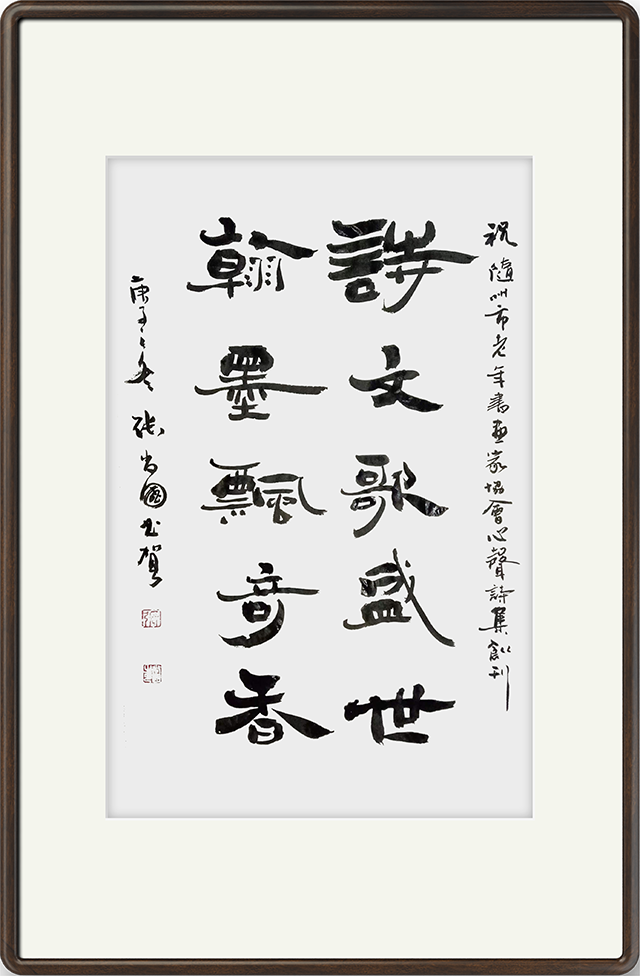 祝隨州市老年書画家協會心聲詩集創刊
詩文歌盛世
翰墨飄奇香
庚子之冬 張尚國书賀